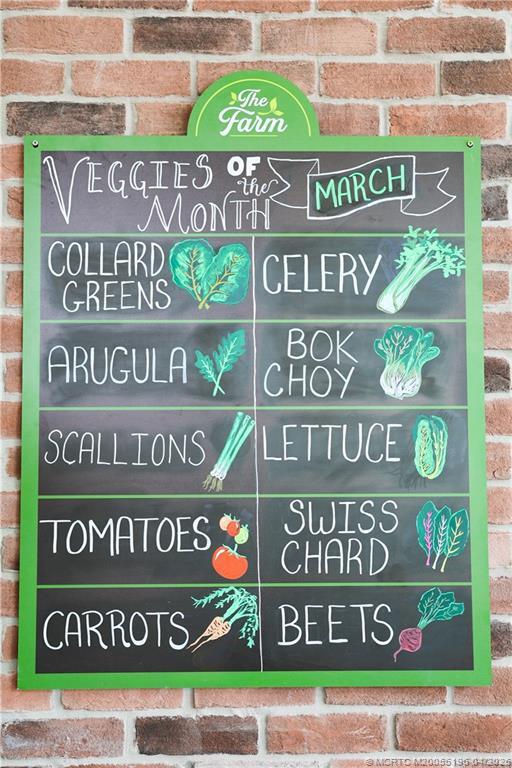 The
Farm
VEGGIES OF
the
MONTH
MARCH
COLLARD
GREENS
CELERY
ARUGULA
BOK
CHOY
SCALLIONS
LETTUCE
TOMATOES
SWISS
CHARD
CARROTS
BEETS